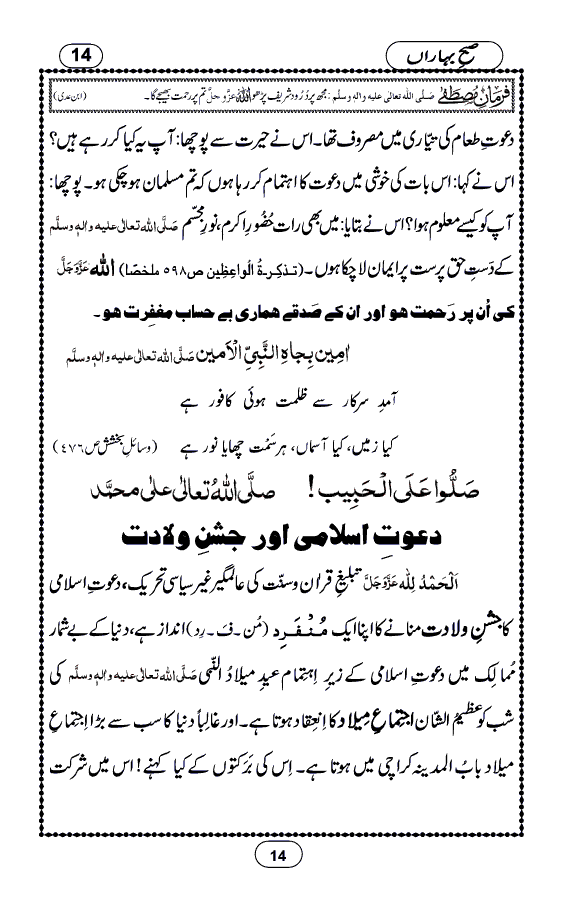 صبحِ بہاراں
14
فرمانِ مصطفٰے صلی اللہ تعالٰی علیہ والہٖ وسلم : مجھ پر دُرُود شریف پڑھو اللہ عَزَّوَجَلَّ تم پر رحمت بھیجے گا۔ (ابن عدی)
دعوتِ طعام کی تیّاری میں مصروف تھا۔ اس نے حیرت سے پوچھا: آپ یہ کیا کر رہے ہیں؟
اس نے کہا: اس بات کی خوشی میں دعوت کا اہتمام کر رہا ہوں کہ تم مسلمان ہو چکی ہو۔ پوچھا:
آپ کو کیسے معلوم ہوا؟ اس نے بتایا: میں بھی رات حُضُورِ اکرم، نورِ مجسّم صَلَّی اللہ تعالٰی علیہ والہٖ وسلَّم
کے دَستِ حق پرست پر ایمان لا چکا ہوں۔ (تذکرۃُ الواعظین ص۵۹۸ ملخصًا) اللہ عَزَّوَجَلَّ
کی اُن پر رَحمت ہو اور ان کے صَدقے ہماری بے حساب مغفِرت ہو۔
اٰمِین بِجاہِ النَّبِیِّ الْاَمین صَلَّی اللہ تعالٰی علیہ والہٖ وسلَّم
آمدِ سرکار سے ظلمت ہوئی کافور ہے
کیا زمیں، کیا آسماں، ہر سَمْت چھایا نور ہے (وسائلِ بخشش ص۴۷۶)
صَلُّوا عَلَی الْحَبِیب! صلَّی اللہُ تعالٰی علٰی محمَّد
دعوتِ اسلامی اور جشنِ ولادت
اَلْحَمْدُ لِلّٰہ عَزَّوَجَلَّ تبلیغِ قراٰن وسنّت کی عالمگیر غیر سیاسی تحریک، دعوتِ اسلامی
کا جشنِ ولادت منانے کا اپنا ایک مُنْفَرِد (مُن۔فَ۔رِد) انداز ہے، دنیا کے بے شمار
مُمالِک میں دعوتِ اسلامی کے زیرِ اہتِمام عیدِ میلادُ النَّبی صَلَّی اللہ تعالٰی علیہ والہٖ وسلَّم کی
شب کو عظیمُ الشّان اجتِماعِ میلاد کا اِنعِقاد ہوتا ہے۔ اور غالِباً دنیا کا سب سے بڑا اِجتِماعِ
میلاد بابُ المدینہ کراچی میں ہوتا ہے۔ اِس کی بَرَکتوں کے کیا کہنے! اس میں شرکت
14